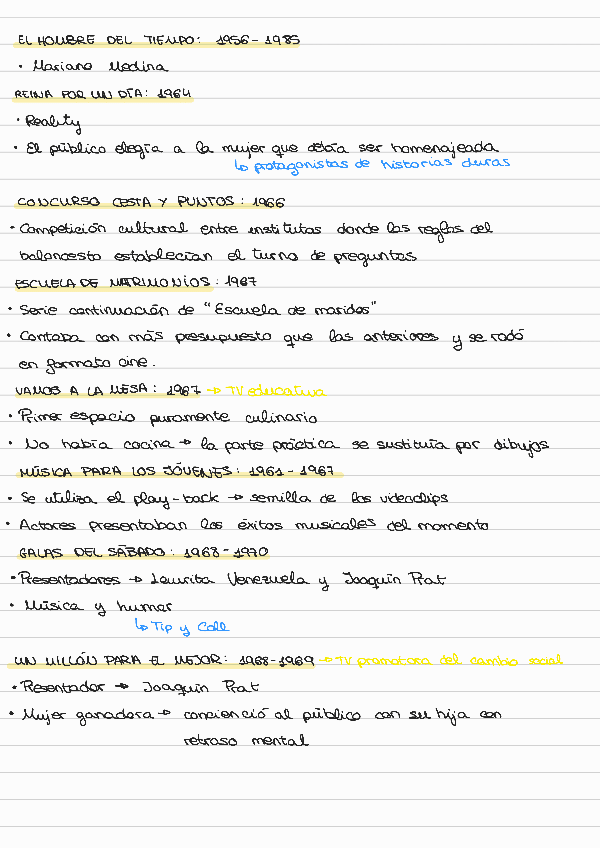 EL HOMBRE DEL TIEMPO: 1956-1985
• Mariano Medina
REINA POR UN DÍA: 1964
• Reality
• El público elegía a la mujer que debía ser homenajeada
↳ protagonistas de historias duras
CONCURSO CESTA Y PUNTOS: 1966
• Competición cultural entre institutos donde las reglas del
baloncesto establecían el turno de preguntas
ESCUELA DE MATRIMONIOS: 1967
• Serie continuación de "Escuela de maridos"
• Contaba con más presupuesto que las anteriores y se rodó
en formato cine.
VAMOS A LA MESA: 1967 → TV educativa
• Primer espacio puramente culinario
• No había cocina → la parte práctica se sustituía por dibujos
MÚSICA PARA LOS JÓVENES: 1961-1967
• Se utiliza el play-back → semilla de los videoclips
• Actores presentaban los éxitos musicales del momento
GALAS DEL SÁBADO: 1968-1970
• Presentadores → Laurita Venezuela y Joaquín Prat
• Música y humor
↳ Tip y Coll
UN MILLÓN PARA EL MEJOR: 1968-1969 → TV promotora del cambio social
• Presentador → Joaquín Prat
• Mujer ganadora → concienció al público con su hija con
retraso mental